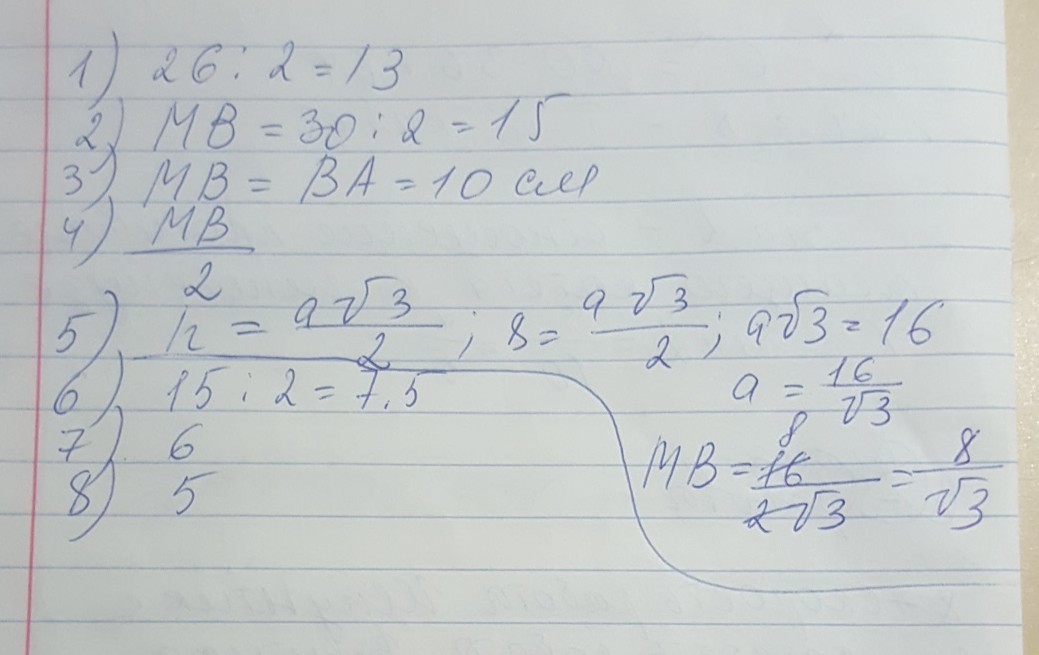 1) 26 : 2 = 13
2) MB = 30 : 2 = 15
3) MB = BA = 10 см
4) MB/2
5) h = a√3/2 ; 8 = a√3/2 ; a√3 = 16
a = 16/√3
MB = 16/2√3 = 8/√3
8
6) 15 : 2 = 7.5
7) 6
8) 5